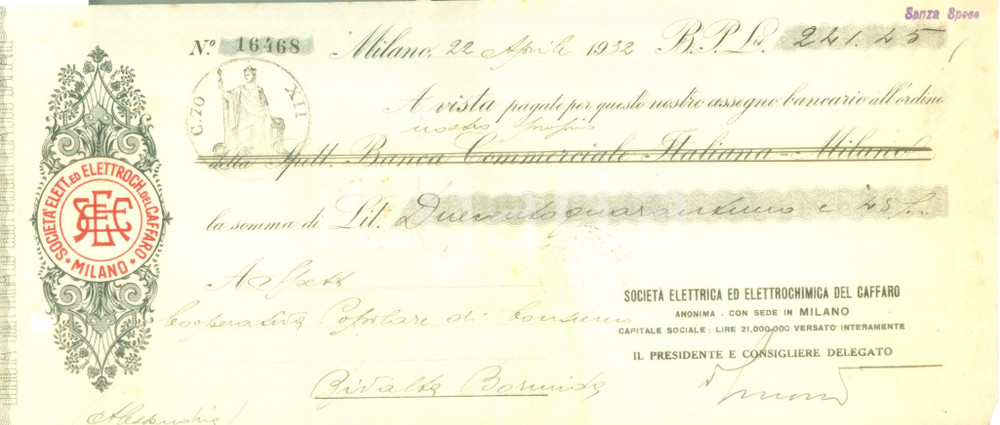 Senza Spese
Nº 16468 Milano, 22 Aprile 1932 B. P. Lit. 221.45
C. 70 XII
A vista pagate per questo nostro assegno bancario all'ordine
nostro proprio
della Spett. Banca Commerciale Italiana - Milano
la somma di Lit. Duecentoquarantuno e 45/..
SOCIETÀ ELETT. ED ELETTROCH. DEL CAFFARO
* MILANO *
SEEC
A Spett
Cooperativa Popolare di Consumo
Rivalta Bormida
Alessandria
SOCIETÀ ELETTRICA ED ELETTROCHIMICA DEL CAFFARO
ANONIMA - CON SEDE IN MILANO
CAPITALE SOCIALE: LIRE 21,000,000 VERSATO INTERAMENTE
IL PRESIDENTE E CONSIGLIERE DELEGATO